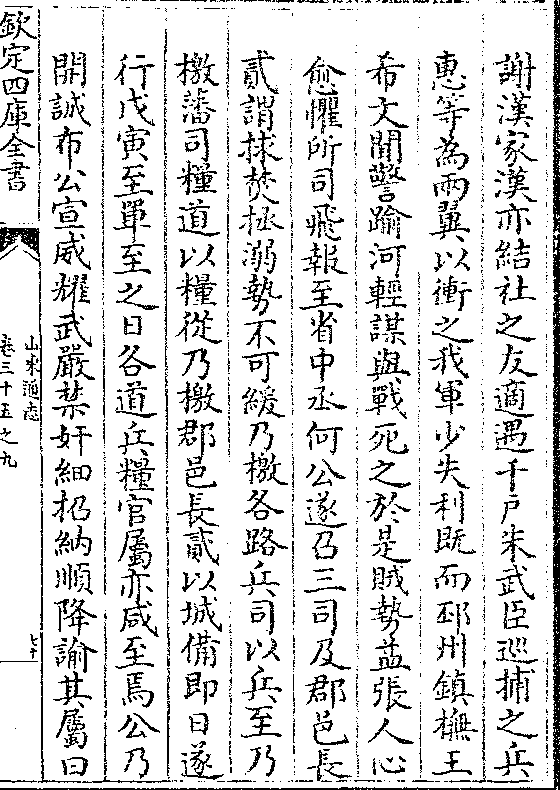 謝漢家漢亦結社之友適遇千戸朱武臣巡捕之兵
惠等為兩翼以衝之我軍少失利既而邳州鎮橅王
希文聞警踰河輕謀與戰死之於是賊勢益張人心
愈懼所司飛報至省中丞何公遂召三司及郡邑長
貳謂捄焚拯溺勢不可緩乃檄各路兵司以兵至乃
檄藩司糧道以糧從乃檄郡邑長貳以城備即日遂
行戊寅至單至之日各道兵糧官屬亦咸至焉公乃
開誠布公宣威耀武嚴禁奸細招納順降諭其屬曰
欽定四庫全書
山東通志
卷三十五之九
七十